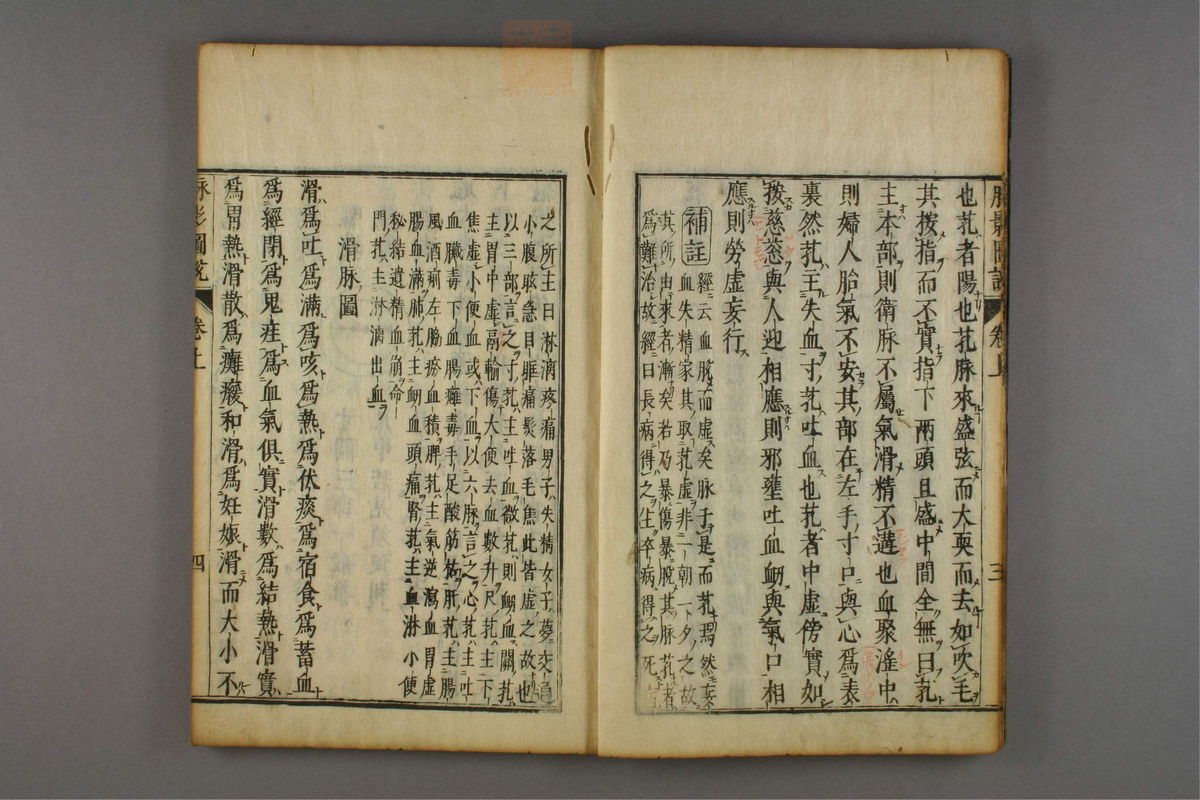 脉影圖説 卷上 三
也芤者陽也芤脉來盛弦而大耎而去如吹毛
其按指而不實指下兩頭且盛中間全無曰芤
主本部則衛脉不屬氣滑精不遘也血聚滛中
則婦人胎氣不安其部在左手寸口與心爲表
裏然芤主失血寸芤吐血也芤者中虚傍實如
按慈葱與人迎相應則邪壅吐血衂與氣口相
應則勞虚妄行
補註 經云血脱而虚矣脉于是而芤焉然妄
血失精家其取芤虚非一朝一夕之故
其所由來者漸矣若乃暴傷暴脱其脉芤者
爲難治故經曰長病得之生卒病得之死
之所主曰淋漓疼痛男子失精女子夢交
小腹眩急目眶痛髮落毛焦此皆虚之故也
以三部言之寸芤主吐血微芤則衂血關芤
主胃中虚鬲輸傷大便去血數升尺芤主下
焦虚小便血或下血以六脉言之心芤主吐
血臟毒下血腸癰毒手足酸筋枯肝芤主腸
風酒痢左脇瘀血積脾芤主氣逆瀉血胃虚
腸血滿肺芤主衂血頭痛腎芤主血淋小便
秘結遺精血崩命
門芤主淋漓出血
滑脉圖
滑爲吐爲滿爲咳爲熱爲伏痰爲宿食爲蓄血
爲經閉爲鬼疰爲血氣俱實滑數爲結熱滑實
爲胃熱滑散爲癱瘓和滑爲妊娠滑而大小不
脉影圖説 卷上 四